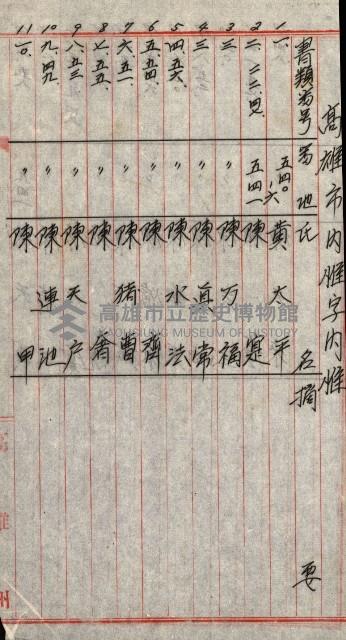 高雄市內惟字內惟
書類番号 番地 氏名 摘要
1 一、 五四〇ノ六 黃太平
2 二、二二四、 五四一 陳寔
3 三、 〃 陳万福
4 三、 〃 陳道常
5 四、五六、 〃 陳水法
6 五、五四、 〃 陳齊
7 六、五一、 〃 陳猪曹
8 七、五五、 〃 陳
9 八、五三、 〃 陳天户
10 九、四九、 〃 陳連池
11 一〇、 〃 陳甲
高雄市立歷史博物館
KAOHSIUNG MUSEUM OF HISTORY
雄州